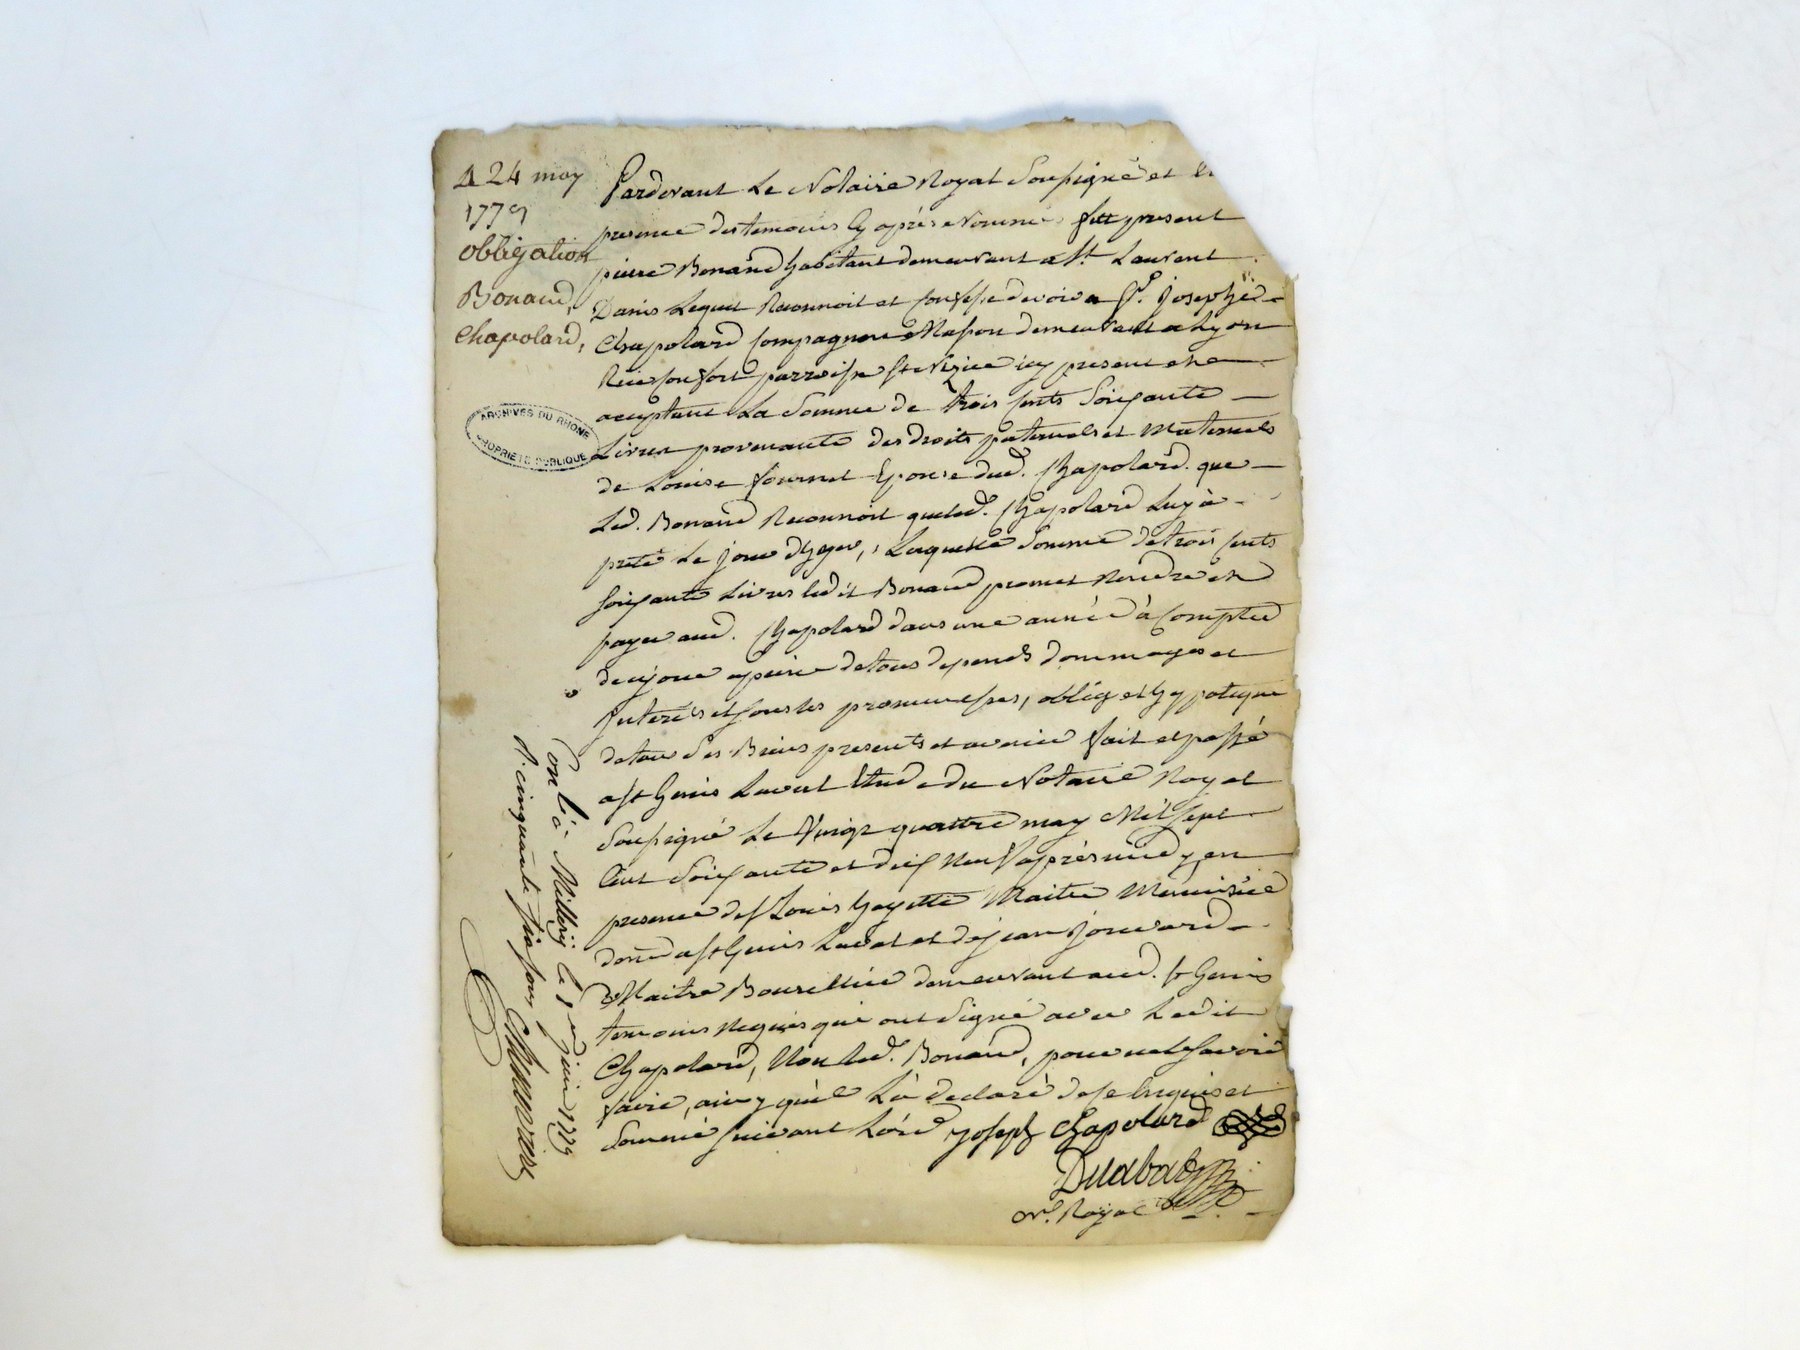 24 may
1779
obligation
Bonand,
Chapolard,
ARCHIVES DU RHONE
PROPRIETE PUBLIQUE
Pardevant Le Notaire Royal Soussigné et En
presence des temoins Cy après Nommés fut present
pierre Bonand habitant demeurant a St Laurent
Danis Lequel Reconnoit et Confesse devoir a Sr. Joseph
Chapolard Compagnon Masson demeurant a Lyon
Rue Confort parroisse St Nizier icy present et
acceptant La Somme de trois Cents Soixante
Livres provenante des droits paternels et Maternels
de Louise fournel Epouse dud. Chapolard. que
Led. Bonand Reconnoit que led. Chapolard Luy à
preté Le jour d'hyer, Laquelle Somme de trois Cents
soixante Livres ledit Bonand promet Rendre et
payer aud. Chapolard dans une année à Compter
de ce jour a peine de tous depends dommages et
Interés et sous les promesses, oblig et hypoteque
de tous Ses Biens presents et avenir fait et passé
a St Genis Laval Etude du Notaire Royal
Soussigné Le Vingt quattre may Mil Sept
Cent Soixante et dix Neuf après midy en
presence de Louis Gayette Maitre Menuisier
demt a St Genis Laval et de jean jouvard
Maitre Bourellier demeurant aud. St Genis
temoins Requis qui ont Signé avec Ledit
Chapolard, Non led. Bonand, pour ne Savoir
faire, ainsy qu'il L'à declaré de ce Enquis et
Sommé suivant L'ord joseph chapolard
Duabad
Nre. Royal
Conlé à Millery le 1er juin 1779
R. cinquante six sous